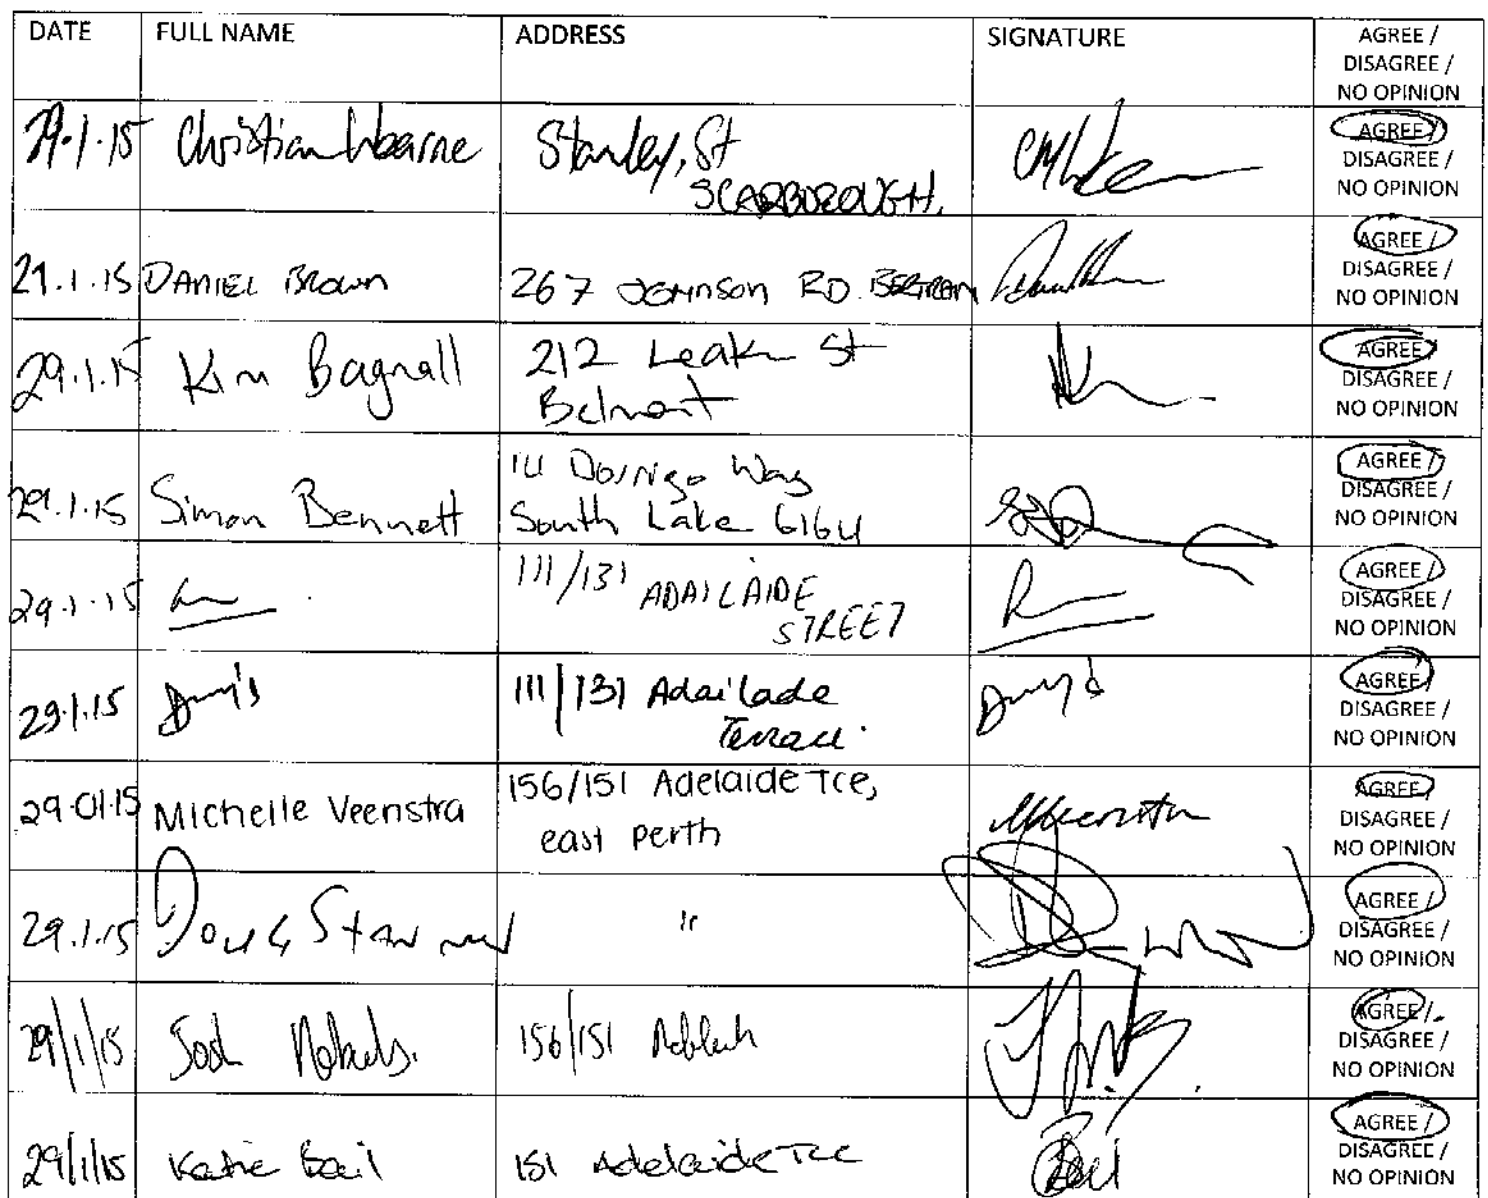 DATE FULL NAME ADDRESS SIGNATURE AGREE /
DISAGREE /
NO OPINION
29.1.15 Christian Hearne Stanley, St
SCARBOROUGH.
AGREE /
DISAGREE /
NO OPINION
29.1.15 DANIEL BROWN 267 JOHNSON RD. BERTRAM
AGREE /
DISAGREE /
NO OPINION
29.1.15 Kim Bagnall 212 Leake St
Belmont
AGREE /
DISAGREE /
NO OPINION
29.1.15 Simon Bennett 14 Dorrigo Way
South Lake 6164
AGREE /
DISAGREE /
NO OPINION
29.1.15 111/131 ADAILAIDE
STREET
AGREE /
DISAGREE /
NO OPINION
29.1.15 111/131 Adailade
Terrace.
AGREE /
DISAGREE /
NO OPINION
29.01.15 Michelle Veenstra 156/151 Adelaide Tce,
east perth
AGREE /
DISAGREE /
NO OPINION
29.1.15 Doug "
AGREE /
DISAGREE /
NO OPINION
29/1/15 Josh Roberts. 156/151
AGREE /
DISAGREE /
NO OPINION
29/1/15 Katie Bail 151 Adelaide Tce
AGREE /
DISAGREE /
NO OPINION